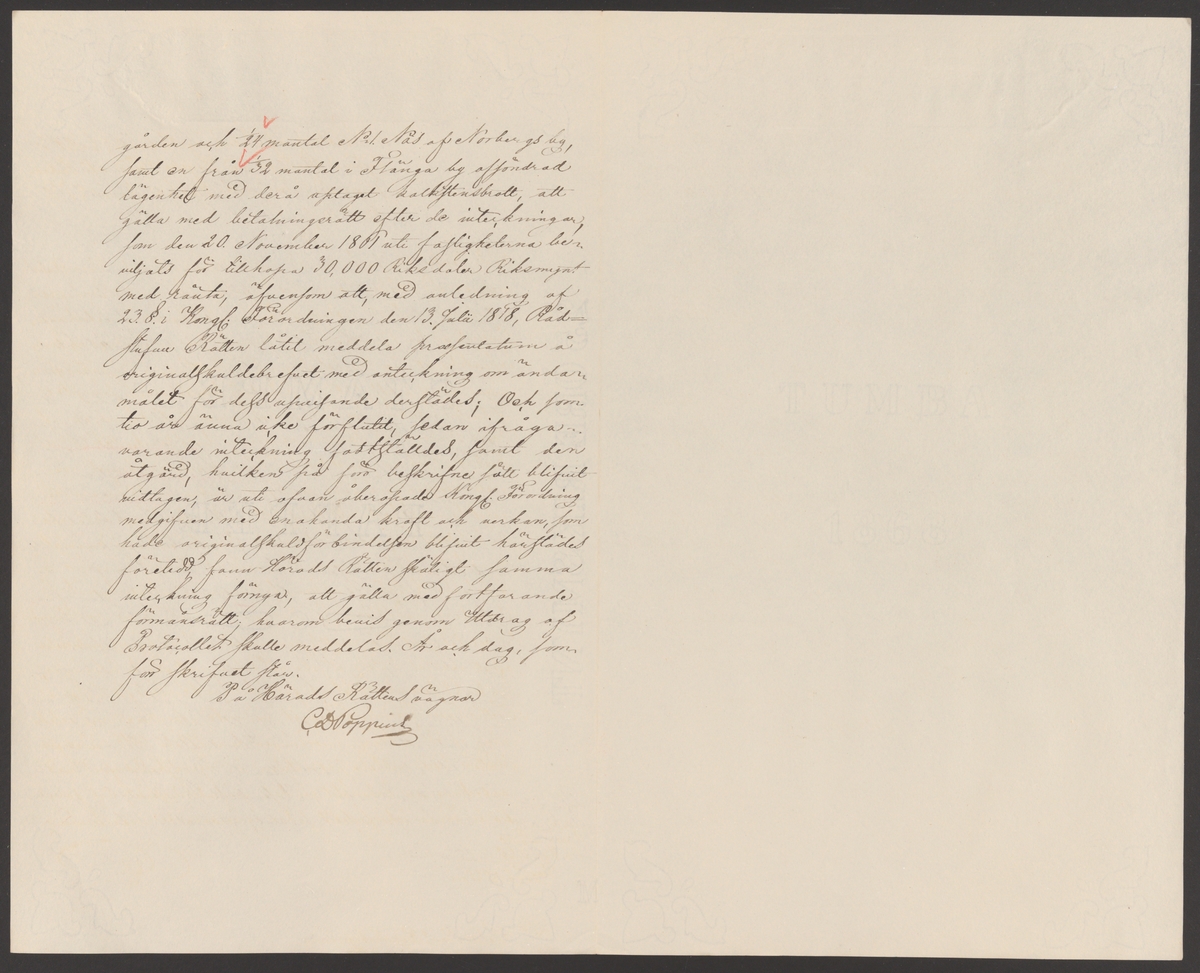 gården och 1/24 mantal No 1. Näs af Norbergs by,
samt en från 1/32 mantal i Flänga by afsöndrad
lägenhet med derå uptaget kalkstensbrott, att
gälla med betalningsrätt efter de inteckningar,
som den 20. November 1861 uti fastigheterna be-
viljats för tillhopa 30,000 Riksdaler Riksmynt
med ränta, äfvensom att, med anledning af
23.§. i Kongl. Förordningen den 13. Juli 1818, Råd=
stufvu Rätten låtit meddela præsentatum å
originalskuldebrefvet med anteckning om ända-
målet för dess upvisande derstädes; Och som
tio år ännu icke förflutit, sedan ifråga-
varande inteckning fastställdes, samt den
åtgärd, hvilken på förebeskrifne sätt blifvit
vidtagen, är uti ofvan åberopade Kongl. Förordning
medgifven med enahanda kraft och verkan, som
hade originalskuldförbindelsen blifvit härstädes
företedd, fann Härads Rätten skäligt samma
inteckning förnya, att gälla med fortfarande
förmånsrätt; hvarom bevis genom Utdrag af
Protocollet skulle meddelas. År och dag, som
förr skrifvet står.
På Härads Rättens vägnar
C D Poppius